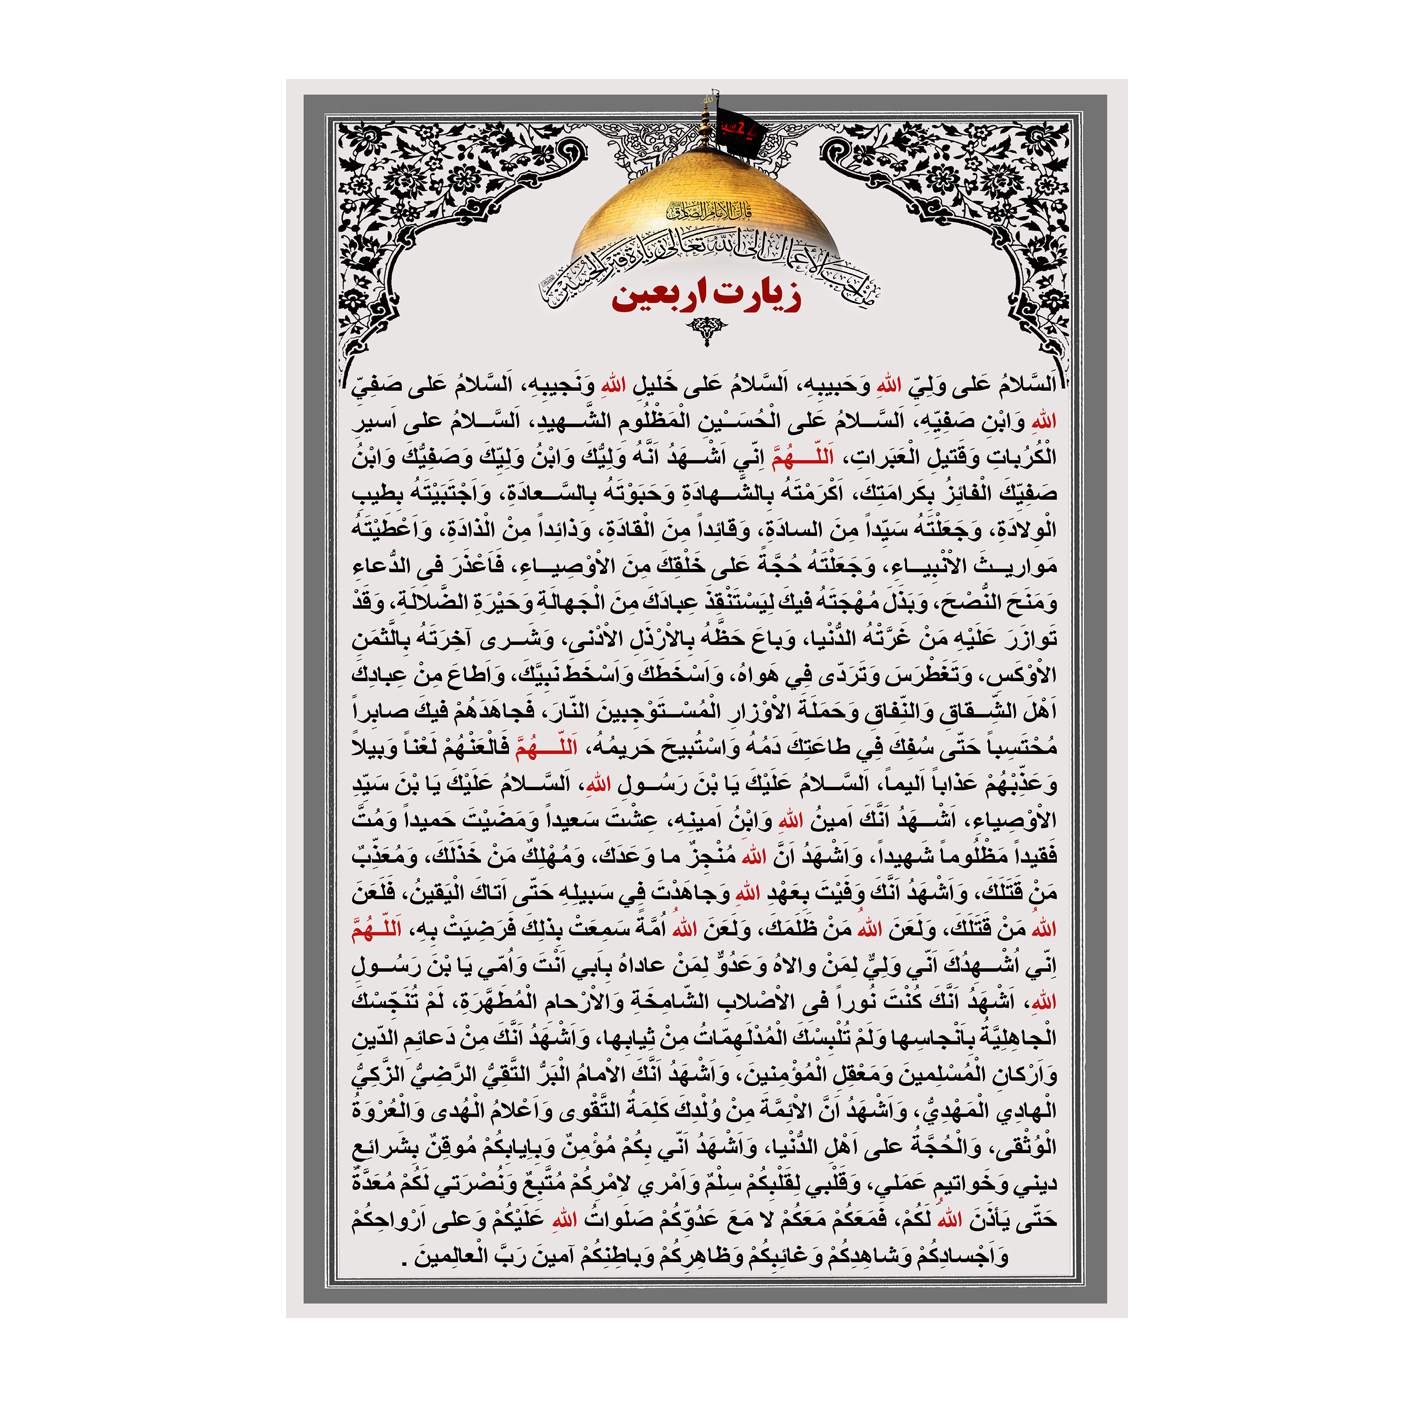 یا حسین
قالَ الاِمامُ الصّادِق
مِنْ اَحَبِّ الاَعمالِ اِلَی اللهِ تَعالی زیارَةُ قَبرِ الحُسَینِ
زیارت اربعین
اَلسَّلامُ عَلى وَلِيِّ اللهِ وَحَبيبِهِ، اَلسَّلامُ عَلى خَليلِ اللهِ وَنَجيبِهِ، اَلسَّلامُ عَلى صَفِيِّ
اللهِ وَابْنِ صَفِيِّهِ، اَلسَّـلامُ عَلى الْحُسَـيْنِ الْمَظْلُومِ الشَّـهيدِ، اَلسَّـلامُ على اَسيرِ
الْكُرُباتِ وَقَتيلِ الْعَبَراتِ، اَللّـهُمَّ اِنّي اَشْـهَدُ اَنَّهُ وَلِيُّكَ وَابْنُ وَلِيِّكَ وَصَفِيُّكَ وَابْنُ
صَفِيِّكَ الْفائِزُ بِكَرامَتِكَ، اَكْرَمْتَهُ بِالشَّـهادَةِ وَحَبَوْتَهُ بِالسَّـعادَةِ، وَاَجْتَبَيْتَهُ بِطيبِ
الْوِلادَةِ، وَجَعَلْتَهُ سَيّداً مِنَ السادَةِ، وَقائِداً مِنَ الْقادَةِ، وَذائِداً مِنْ الْذادَةِ، وَاَعْطَيْتَهُ
مَواريـثَ الاَْنْبِيـاءِ، وَجَعَلْتَهُ حُجَّةً عَلى خَلْقِكَ مِنَ الاَْوْصِيـاءِ، فَاَعْذَرَ فى الدُّعاءِ
وَمَنَحَ النُّصْحَ، وَبَذَلَ مُهْجَتَهُ فيكَ لِيَسْتَنْقِذَ عِبادَكَ مِنَ الْجَهالَةِ وَحَيْرَةِ الضَّلالَةِ، وَقَدْ
تَوازَرَ عَلَيْهِ مَنْ غَرَّتْهُ الدُّنْيا، وَباعَ حَظَّهُ بِالاَْرْذَلِ الاَْدْنى، وَشَـرى آخِرَتَهُ بِالَّثمَنِ
الاَْوْكَسِ، وَتَغَطْرَسَ وَتَرَدّى فِي هَواهُ، وَاَسْخَطَكَ وَاَسْخَطَ نَبِيَّكَ، وَاَطاعَ مِنْ عِبادِكَ
اَهْلَ الشِّـقاقِ وَالنِّفاقِ وَحَمَلَةَ الاَْوْزارِ الْمُسْـتَوْجِبينَ النّارَ، فَجاهَدَهُمْ فيكَ صابِراً
مُحْتَسِباً حَتّى سُفِكَ فِي طاعَتِكَ دَمُهُ وَاسْتُبيحَ حَريمُهُ، اَللّـهُمَّ فَالْعَنْهُمْ لَعْناً وَبيلاً
وَعَذِّبْهُمْ عَذاباً اَليماً، اَلسَّـلامُ عَلَيْكَ يَا بْنَ رَسُـولِ اللهِ، اَلسَّـلامُ عَلَيْكَ يَا بْنَ سَيِّدِ
الاَْوْصِياءِ، اَشْـهَدُ اَنَّكَ اَمينُ اللهِ وَابْنُ اَمينِهِ، عِشْتَ سَعيداً وَمَضَيْتَ حَميداً وَمُتَّ
فَقيداً مَظْلُوماً شَهيداً، وَاَشْهَدُ اَنَّ اللهَ مُنْجِزٌ ما وَعَدَكَ، وَمُهْلِكٌ مَنْ خَذَلَكَ، وَمُعَذِّبٌ
مَنْ قَتَلَكَ، وَاَشْهَدُ اَنَّكَ وَفَيْتَ بِعَهْدِ اللهِ وَجاهَدْتَ فِي سَبيلِهِ حَتّى اَتاكَ الْيَقينُ، فَلَعَنَ
اللهُ مَنْ قَتَلَكَ، وَلَعَنَ اللهُ مَنْ ظَلَمَكَ، وَلَعَنَ اللهُ اُمَّةً سَمِعَتْ بِذلِكَ فَرَضِيَتْ بِهِ، اَللّـهُمَّ
اِنّي اُشْـهِدُكَ اَنّي وَلِيٌّ لِمَنْ والاهُ وَعَدُوٌّ لِمَنْ عاداهُ بِاَبي اَنْتَ وَاُمّي يَا بْنَ رَسُـولِ
اللهِ، اَشْهَدُ اَنَّكَ كُنْتَ نُوراً فى الاَْصْلابِ الشّامِخَةِ وَالاَْرْحامِ الْمُطَهَّرَةِ، لَمْ تُنَجِّسْكَ
الْجاهِلِيَّةُ بِاَنْجاسِها وَلَمْ تُلْبِسْكَ الْمُدْلَهِمّاتُ مِنْ ثِيابِها، وَاَشْهَدُ اَنَّكَ مِنْ دَعائِمِ الدّينِ
وَاَرْكانِ الْمُسْلِمينَ وَمَعْقِلِ الْمُؤْمِنينَ، وَاَشْهَدُ اَنَّكَ الاِْمامُ الْبَرُّ التَّقِيُّ الرَّضِيُّ الزَّكِيُّ
الْهادِي الْمَهْدِيُّ، وَاَشْهَدُ اَنَّ الاَْئِمَّةَ مِنْ وُلْدِكَ كَلِمَةُ التَّقْوى وَاَعْلامُ الْهُدى وَالْعُرْوَةُ
الْوُثْقى، وَالْحُجَّةُ على اَهْلِ الدُّنْيا، وَاَشْهَدُ اَنّي بِكُمْ مُؤْمِنٌ وَبِاِيابِكُمْ مُوقِنٌ بِشَرائِعِ
ديني وَخَواتيمِ عَمَلي، وَقَلْبي لِقَلْبِكُمْ سِلْمٌ وَاَمْري لاَِمْرِكُمْ مُتَّبِعٌ وَنُصْرَتي لَكُمْ مُعَدَّةٌ
حَتّى يَأذَنَ اللهُ لَكُمْ، فَمَعَكُمْ مَعَكُمْ لا مَعَ عَدُوِّكُمْ صَلَواتُ اللهِ عَلَيْكُمْ وَعلى اَرْواحِكُمْ
وَاَجْسادِكُمْ وَشاهِدِكُمْ وَغائِبِكُمْ وَظاهِرِكُمْ وَباطِنِكُمْ آمينَ رَبَّ الْعالِمينَ .